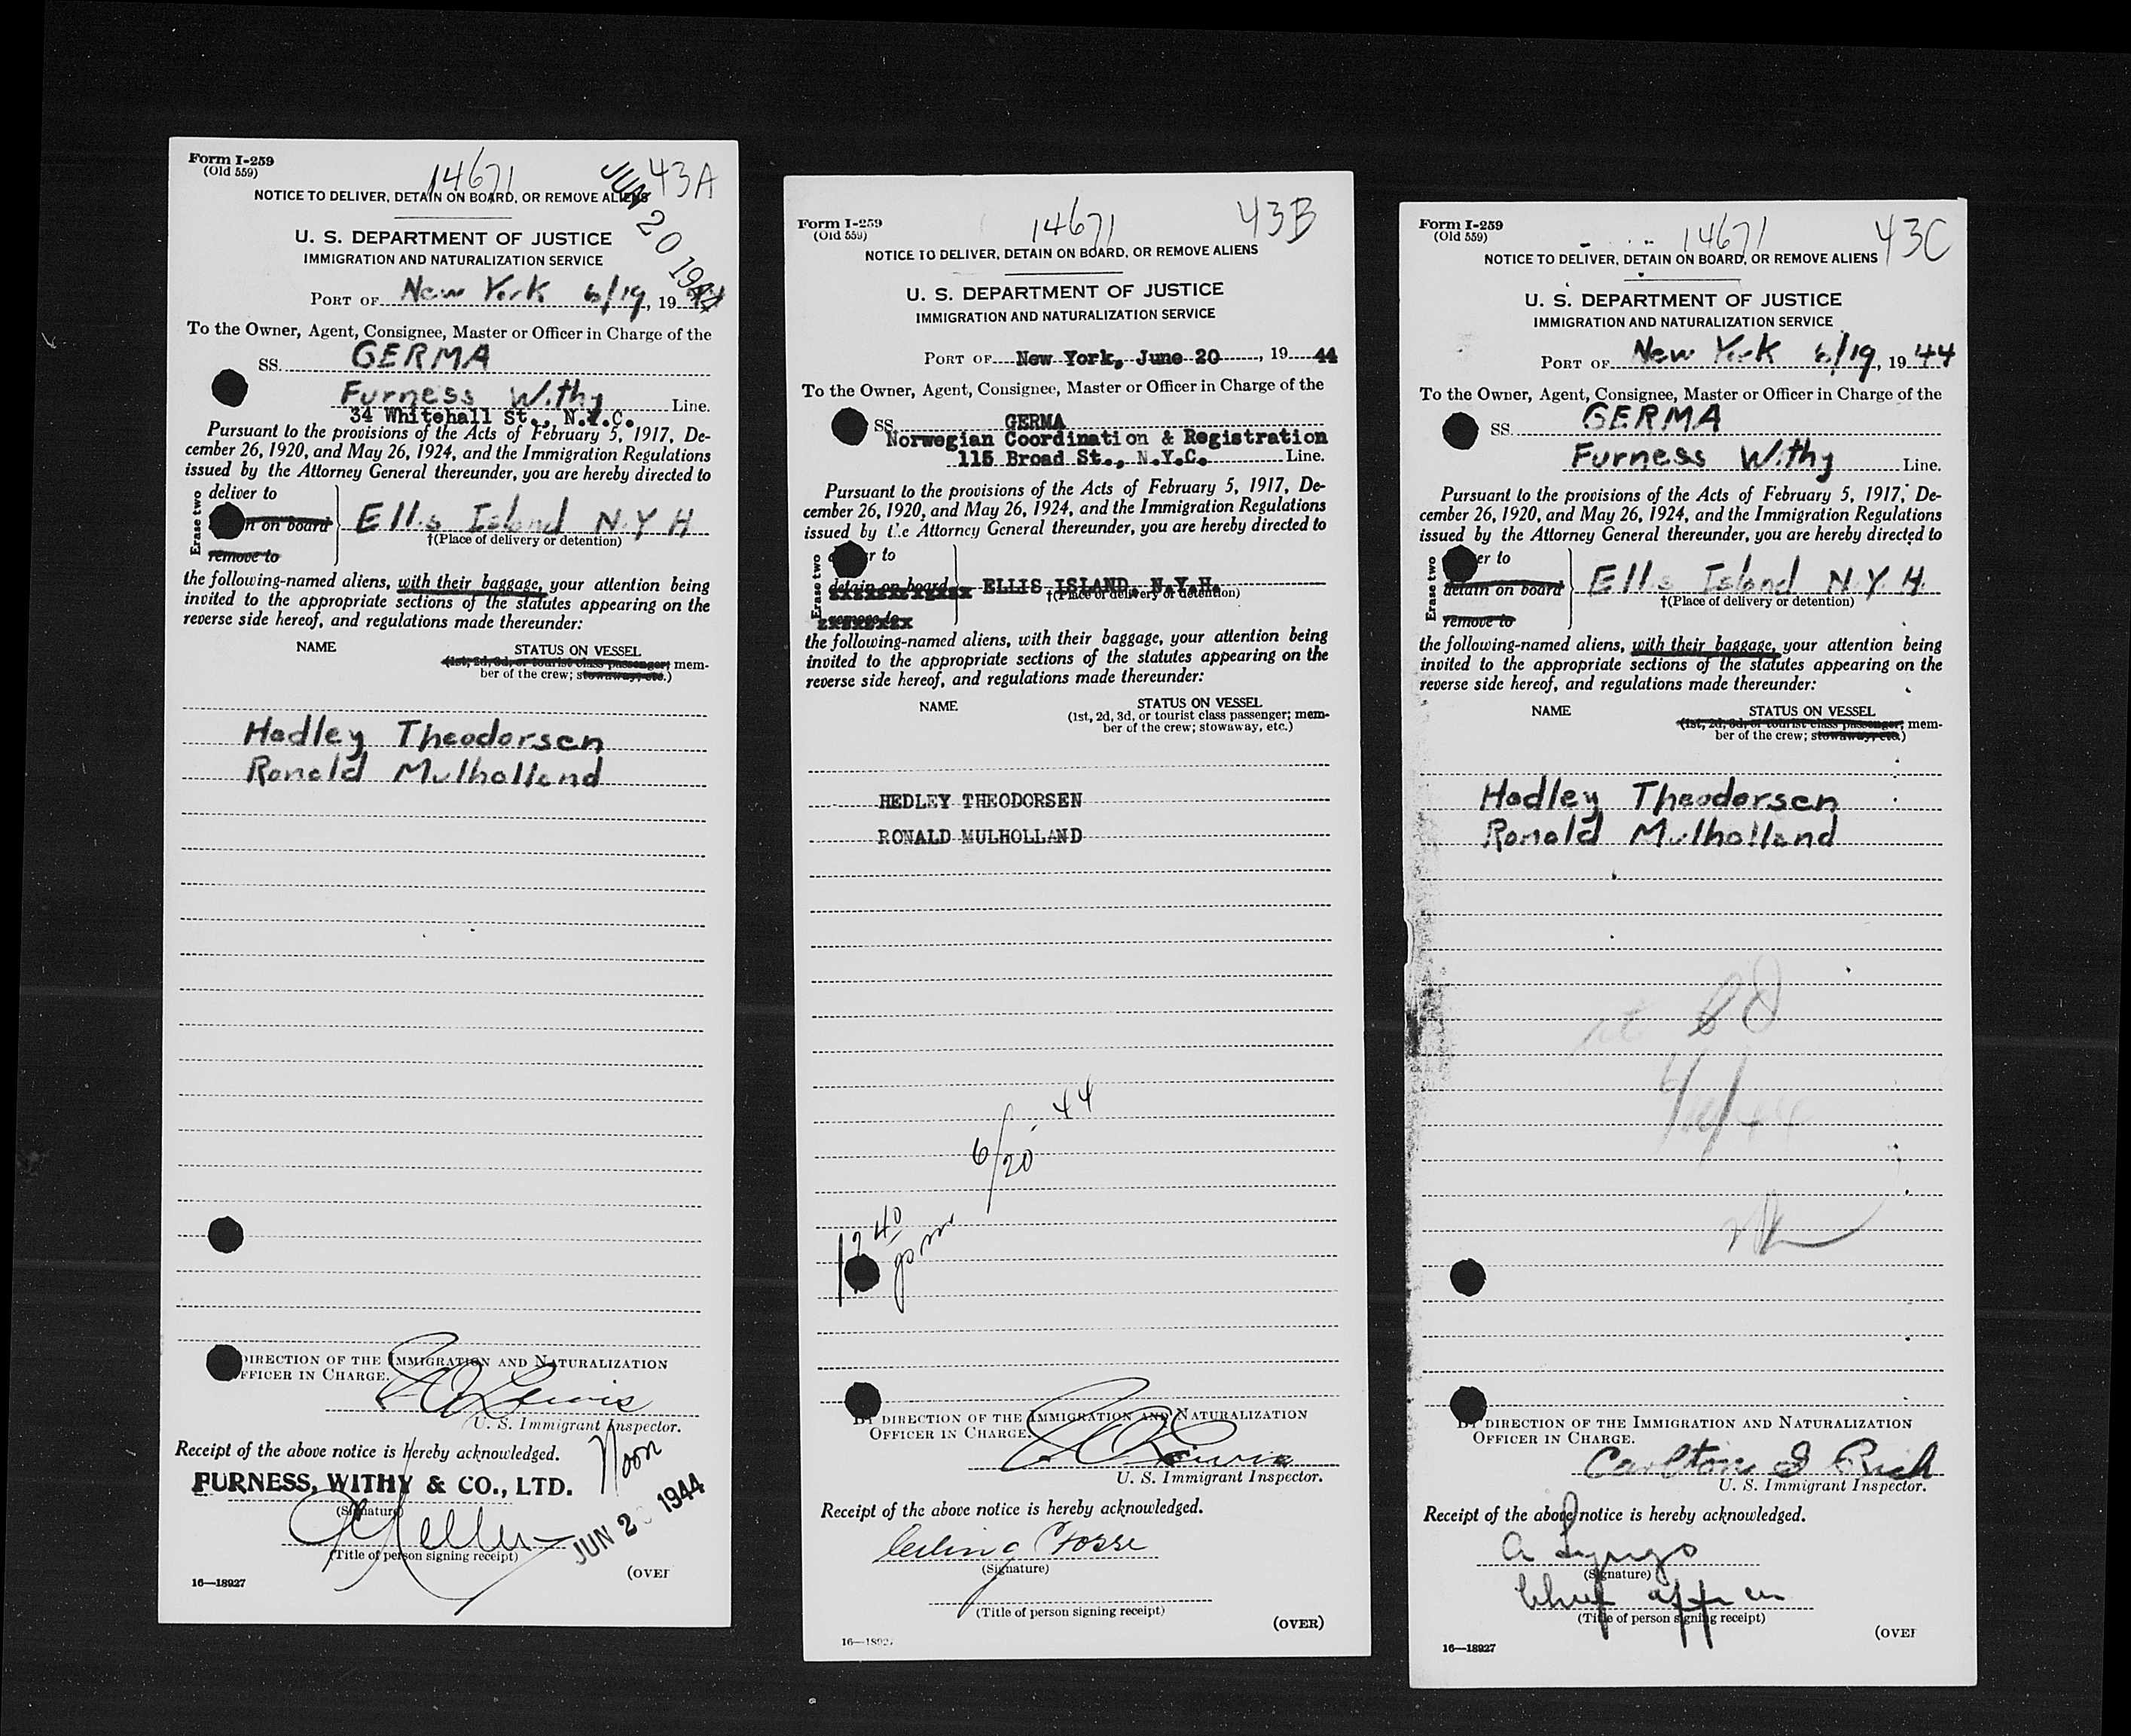 Form I-259
(Old 559)
14671
43A
JUN 20 1944
NOTICE TO DELIVER, DETAIN ON BOARD, OR REMOVE ALIENS
U. S. DEPARTMENT OF JUSTICE
IMMIGRATION AND NATURALIZATION SERVICE
PORT OF New York 6/19, 19 44
To the Owner, Agent, Consignee, Master or Officer in Charge of the
SS. GERMA
Furness Withy Line.
34 Whitehall St., N.Y.C.
Pursuant to the provisions of the Acts of February 5, 1917, De-
cember 26, 1920, and May 26, 1924, and the Immigration Regulations
issued by the Attorney General thereunder, you are hereby directed to
Erase two
deliver to
n on board
remove to
Ellis Island N.Y.H
†(Place of delivery or detention)
the following-named aliens, with their baggage, your attention being
invited to the appropriate sections of the statutes appearing on the
reverse side hereof, and regulations made thereunder:
NAME STATUS ON VESSEL
(1st, 2d, 3d, or tourist class passenger; mem-
ber of the crew; stowaway, etc.)
Hedley Theodorsen
Ronald Mulholland
DIRECTION OF THE IMMIGRATION AND NATURALIZATION
OFFICER IN CHARGE.
Lewis
U. S. Immigrant Inspector.
Receipt of the above notice is hereby acknowledged.
Noon
FURNESS, WITHY & CO., LTD.
(Signature)
JUN 2 1944
(Title of person signing receipt)
(OVER
16—18927
Form I-259
(Old 559)
14671
43B
NOTICE TO DELIVER, DETAIN ON BOARD, OR REMOVE ALIENS
U. S. DEPARTMENT OF JUSTICE
IMMIGRATION AND NATURALIZATION SERVICE
PORT OF New York, June 20, 19 44
To the Owner, Agent, Consignee, Master or Officer in Charge of the
SS GERMA
Norwegian Coordination & Registration
115 Broad St., N.Y.C. Line.
Pursuant to the provisions of the Acts of February 5, 1917, De-
cember 26, 1920, and May 26, 1924, and the Immigration Regulations
issued by the Attorney General thereunder, you are hereby directed to
Erase two
r to
detain on board
remove to
ELLIS ISLAND, N.Y.H.
†(Place of delivery or detention)
the following-named aliens, with their baggage, your attention being
invited to the appropriate sections of the statutes appearing on the
reverse side hereof, and regulations made thereunder:
NAME STATUS ON VESSEL
(1st, 2d, 3d, or tourist class passenger; mem-
ber of the crew; stowaway, etc.)
HEDLEY THEODORSEN
RONALD MULHOLLAND
6/20 44
12 40 pm
BY DIRECTION OF THE IMMIGRATION AND NATURALIZATION
OFFICER IN CHARGE.
Lewis
U. S. Immigrant Inspector.
Receipt of the above notice is hereby acknowledged.
Erling Fosse
(Signature)
(Title of person signing receipt)
(OVER)
16—18927
Form I-259
(Old 559)
14671
43C
NOTICE TO DELIVER, DETAIN ON BOARD, OR REMOVE ALIENS
U. S. DEPARTMENT OF JUSTICE
IMMIGRATION AND NATURALIZATION SERVICE
PORT OF New York 6/19, 19 44
To the Owner, Agent, Consignee, Master or Officer in Charge of the
SS. GERMA
Furness Withy Line.
Pursuant to the provisions of the Acts of February 5, 1917, De-
cember 26, 1920, and May 26, 1924, and the Immigration Regulations
issued by the Attorney General thereunder, you are hereby directed to
Erase two
er to
detain on board
remove to
Ellis Island N.Y.H.
†(Place of delivery or detention)
the following-named aliens, with their baggage, your attention being
invited to the appropriate sections of the statutes appearing on the
reverse side hereof, and regulations made thereunder:
NAME STATUS ON VESSEL
(1st, 2d, 3d, or tourist class passenger; mem-
ber of the crew; stowaway, etc.)
Hedley Theodorsen
Ronald Mulholland
BY DIRECTION OF THE IMMIGRATION AND NATURALIZATION
OFFICER IN CHARGE.
Carlton S Rich
U. S. Immigrant Inspector.
Receipt of the above notice is hereby acknowledged.
(Signature)
(Title of person signing receipt)
(OVER
16—18927